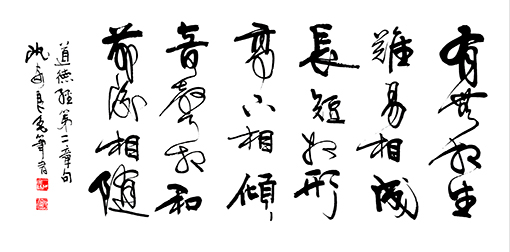 有無相生
難易相成
長短相形
高下相傾
音聲相和
前後相隨
道德經第二章句